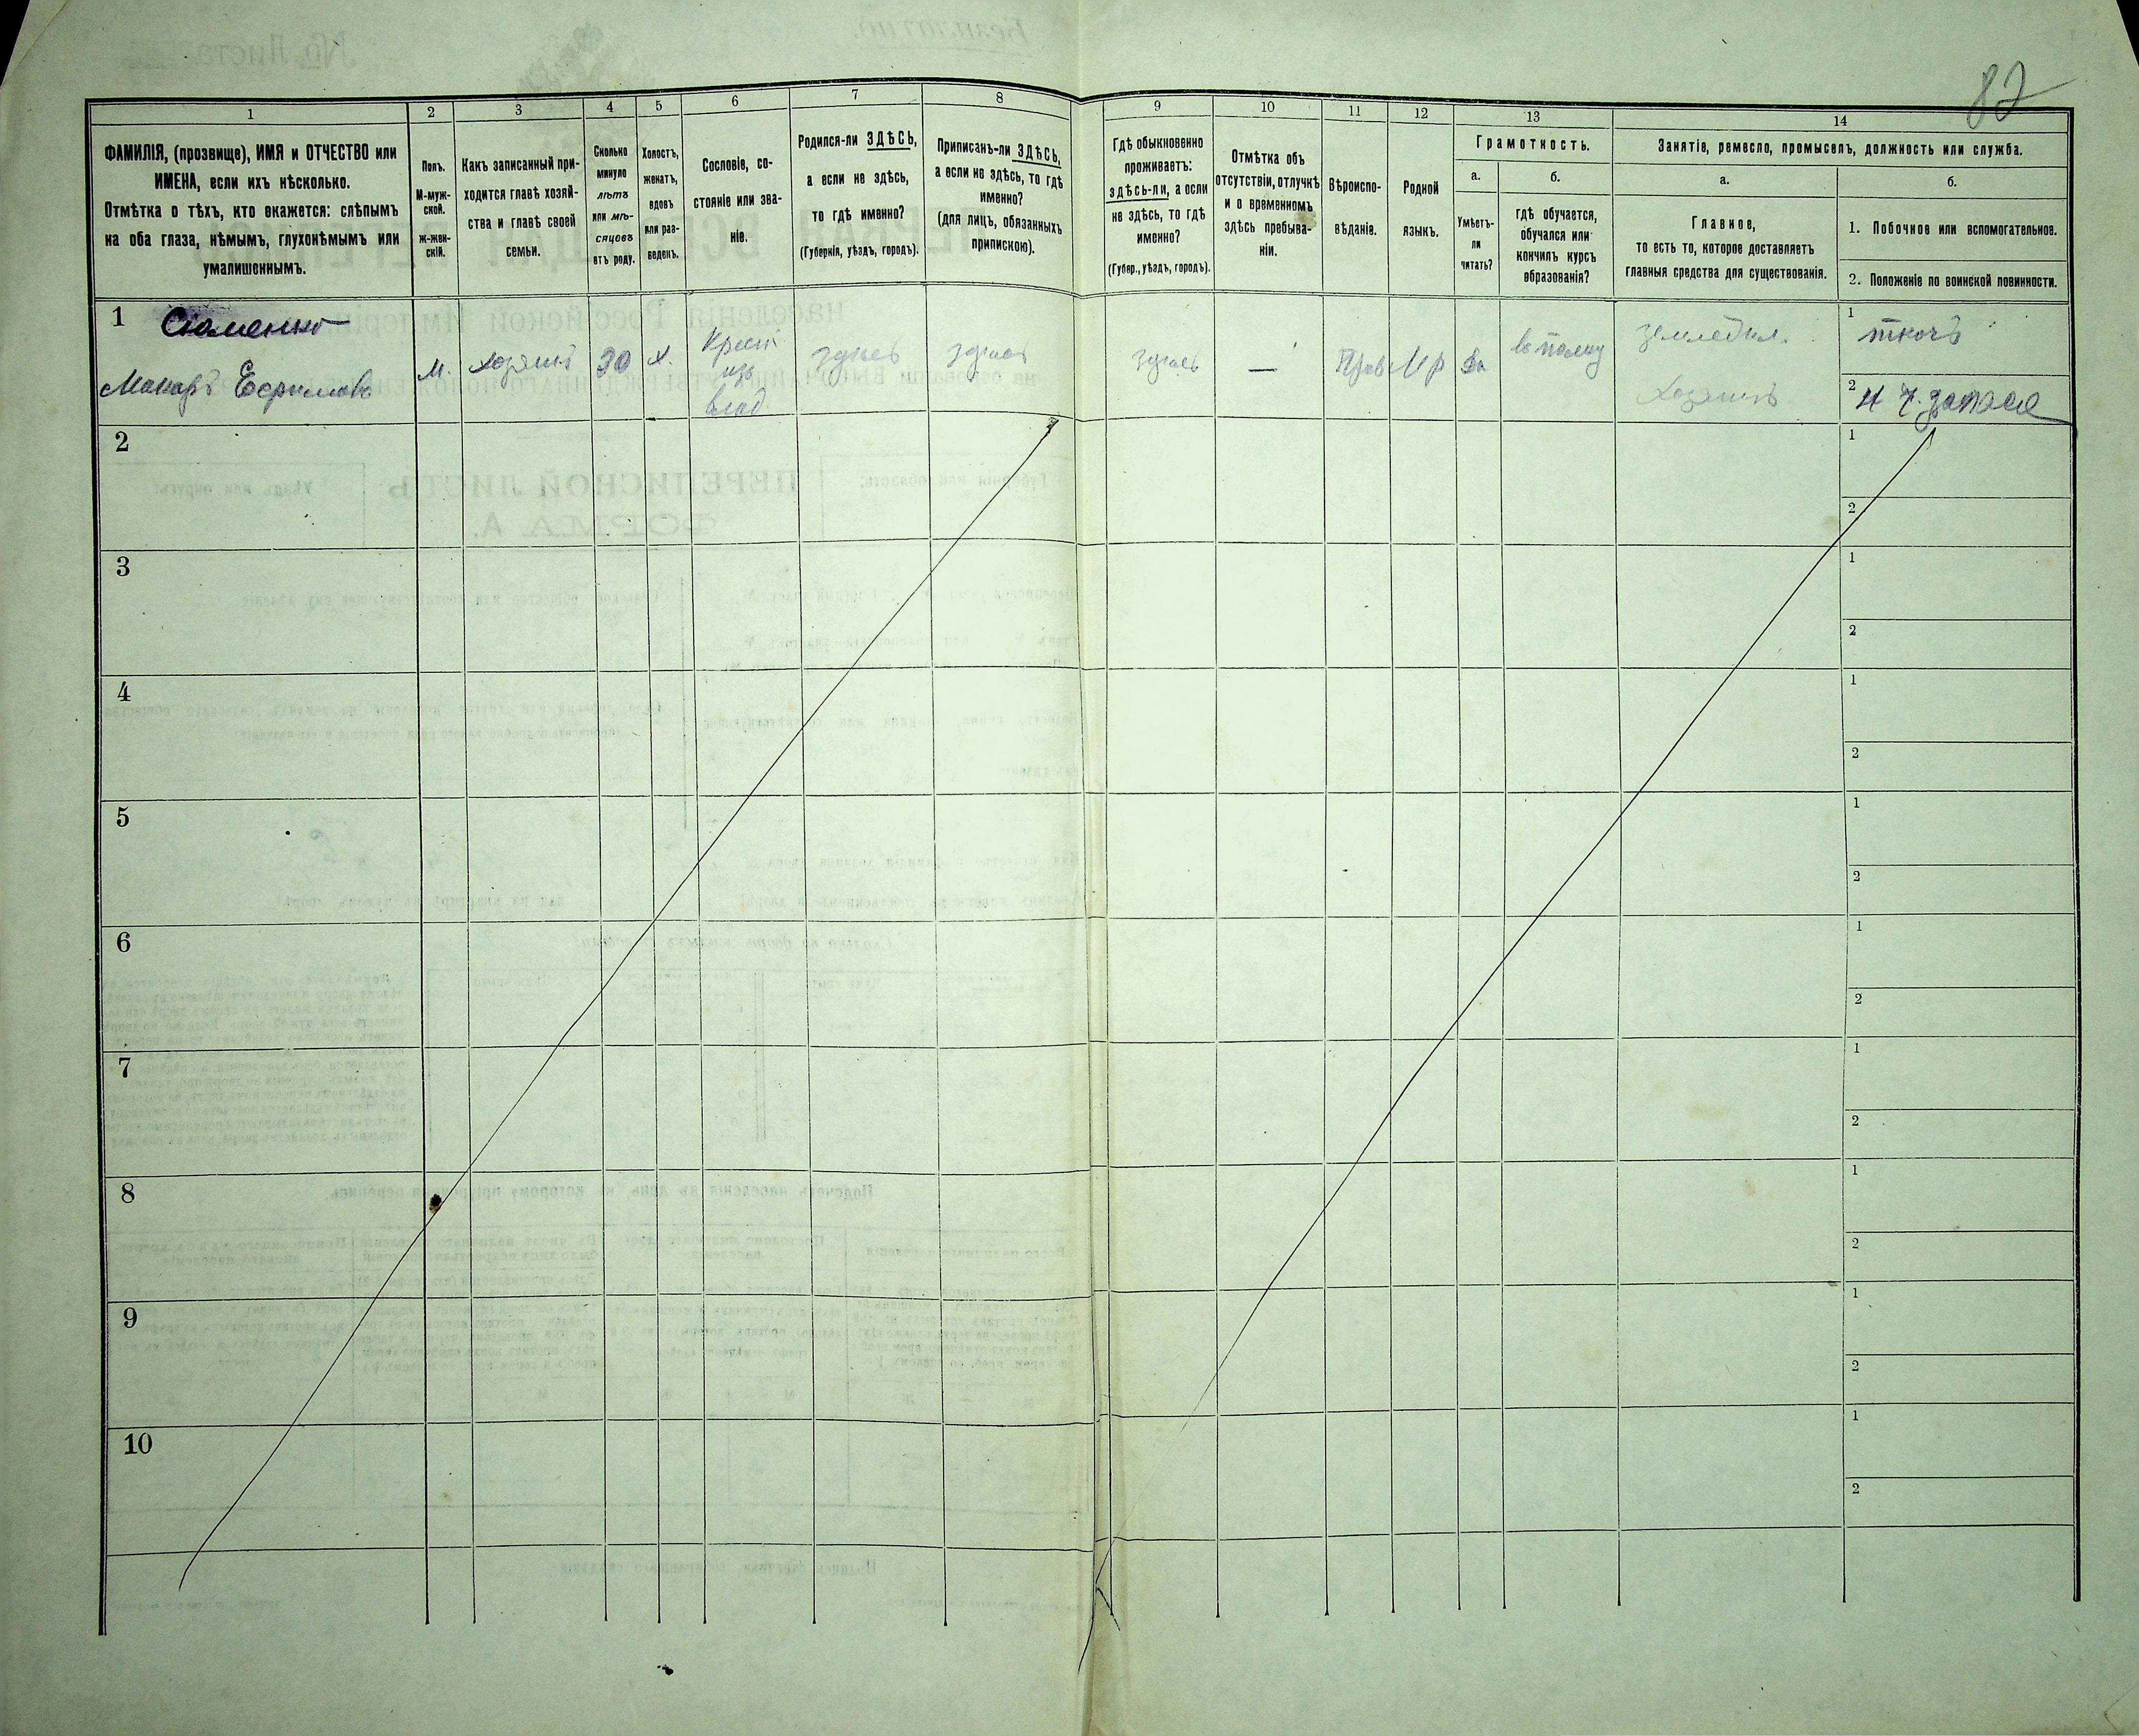 82
1
2
3
4
5
6
7
8
9
10
11
12
13
14
ФАМИЛІЯ, (прозвище), ИМЯ и ОТЧЕСТВО или
ИМЕНА, если ихъ нѣсколько.
Отмѣтка о тѣхъ, кто окажется: слѣпымъ
на оба глаза, нѣмымъ, глухонѣмымъ или
умалишеннымъ.
Полъ.
М-муж-
ской.
Ж-жен-
скій.
Какъ записанный при-
ходится главѣ хозяй-
ства и главѣ своей
семьи.
Сколько
минуло
лѣтъ
или мѣ-
сяцовъ
отъ роду.
Холостъ,
женатъ,
вдовъ
или раз-
веденъ.
Сословіе, со-
стояніе или зва-
ніе.
Родился-ли ЗДѢСЬ,
а если не здѣсь,
то гдѣ именно?
(Губернія, уѣздъ, городъ).
Приписанъ-ли ЗДѢСЬ,
а если не здѣсь, то гдѣ
именно?
(для лицъ, обязанныхъ
припискою).
Гдѣ обыкновенно
проживаетъ:
здѣсь-ли, а если
не здѣсь, то гдѣ
именно?
(Губер., уѣздъ, городъ).
Отмѣтка объ
отсутствіи, отлучкѣ
и о временномъ
здѣсь пребыва-
ніи.
Вѣроиспо-
вѣданіе.
Родной
языкъ.
Грамотность.
а.
Умѣетъ-
ли
читать?
б.
гдѣ обучается,
обучался или
кончилъ курсъ
образованія?
Занятіе, ремесло, промыселъ, должность или служба.
а.
Главное,
то есть то, которое доставляетъ
главныя средства для существованія.
б.
1. Побочное или вспомогательное.
2. Положеніе по воинской повинности.
1
Макаръ
М.
хозяинъ
30
Х.
Крест
изъ
влад.
здѣсь
здѣсь
здѣсь
—
Прав
да
въ полку
земледѣл.
Хозяинъ
1 ткачъ
2 запаса
2
1
2
3
1
2
4
1
2
5
1
2
6
1
2
7
1
2
8
1
2
9
1
2
10
1
2